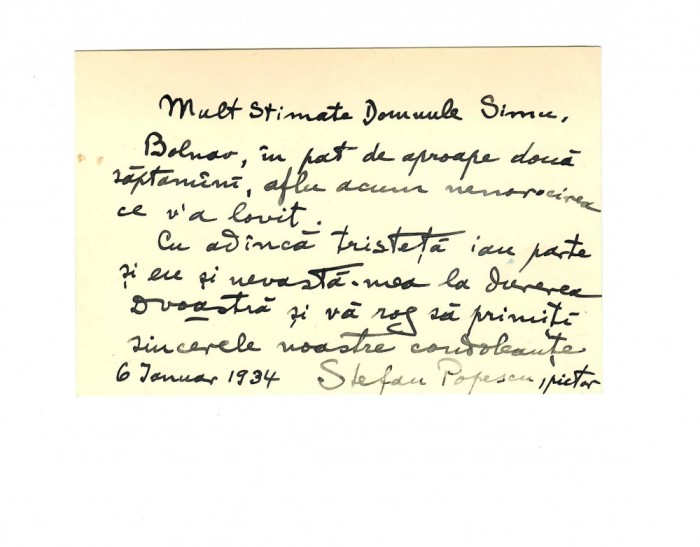 Mult stimate Domnule Simu,
Bolnav, în pat de aproape două
săptamîni, aflu acum nenorocirea
ce v'a lovit.
Cu adîncă tristeță iau parte
și eu și nevastă-mea la durerea
Dvoastră și vă rog să primiți
sincerele noastre condoleanțe
6 Ianuar 1934 Stefan Popescu, pictor